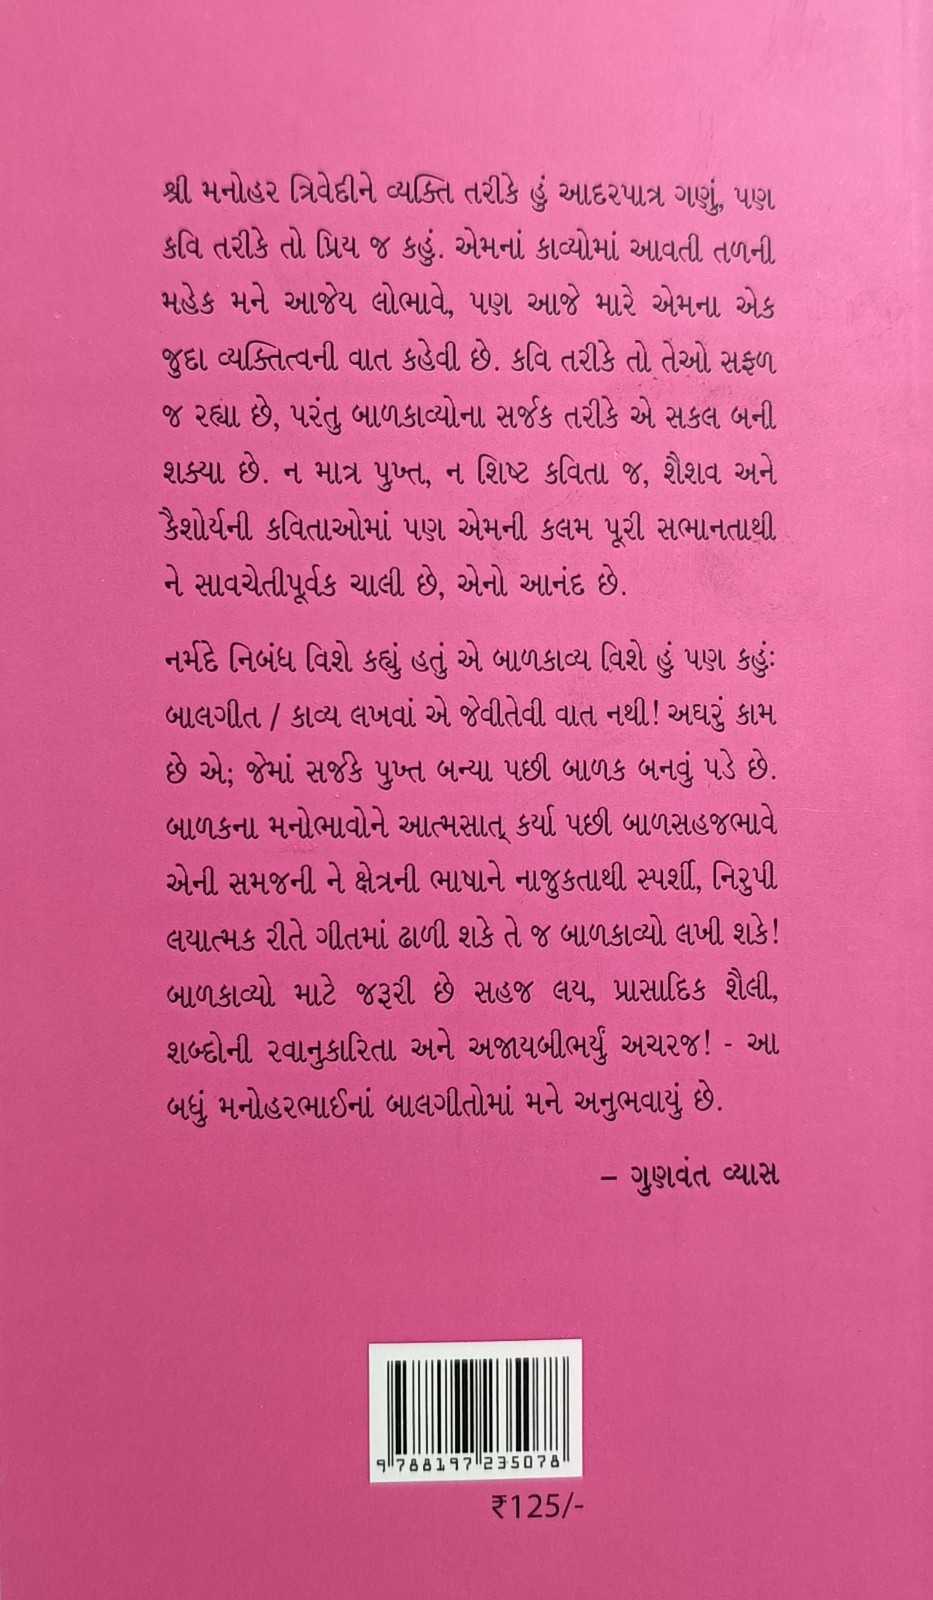 શ્રી મનોહર ત્રિવેદીને વ્યક્તિ તરીકે હું આદરપાત્ર ગણું, પણ
કવિ તરીકે તો પ્રિય જ કહું. એમનાં કાવ્યોમાં આવતી તળની
મહેક મને આજેય લોભાવે, પણ આજે મારે એમના એક
જુદા વ્યક્તિત્વની વાત કહેવી છે. કવિ તરીકે તો તેઓ સફળ
જ રહ્યા છે, પરંતુ બાળકાવ્યોના સર્જક તરીકે એ સકલ બની
શક્યા છે. ન માત્ર પુખ્ત, ન શિષ્ટ કવિતા જ, શૈશવ અને
કૈશોર્યની કવિતાઓમાં પણ એમની કલમ પૂરી સભાનતાથી
ને સાવચેતીપૂર્વક ચાલી છે, એનો આનંદ છે.
નર્મદે નિબંધ વિશે કહ્યું હતું એ બાળકાવ્ય વિશે હું પણ કહુંઃ
બાલગીત / કાવ્ય લખવાં એ જેવીતેવી વાત નથી! અઘરું કામ
છે એ; જેમાં સર્જકે પુખ્ત બન્યા પછી બાળક બનવું પડે છે.
બાળકના મનોભાવોને આત્મસાત્ કર્યા પછી બાળસહજભાવે
એની સમજની ને ક્ષેત્રની ભાષાને નાજુકતાથી સ્પર્શી, નિરુપી
લયાત્મક રીતે ગીતમાં ઢાળી શકે તે જ બાળકાવ્યો લખી શકે!
બાળકાવ્યો માટે જરૂરી છે સહજ લય, પ્રાસાદિક શૈલી,
શબ્દોની રવાનુકારિતા અને અજાયબીભર્યું અચરજ! - આ
બધું મનોહરભાઈનાં બાલગીતોમાં મને અનુભવાયું છે.
– ગુણવંત વ્યાસ
9 788197 235078
₹125/-